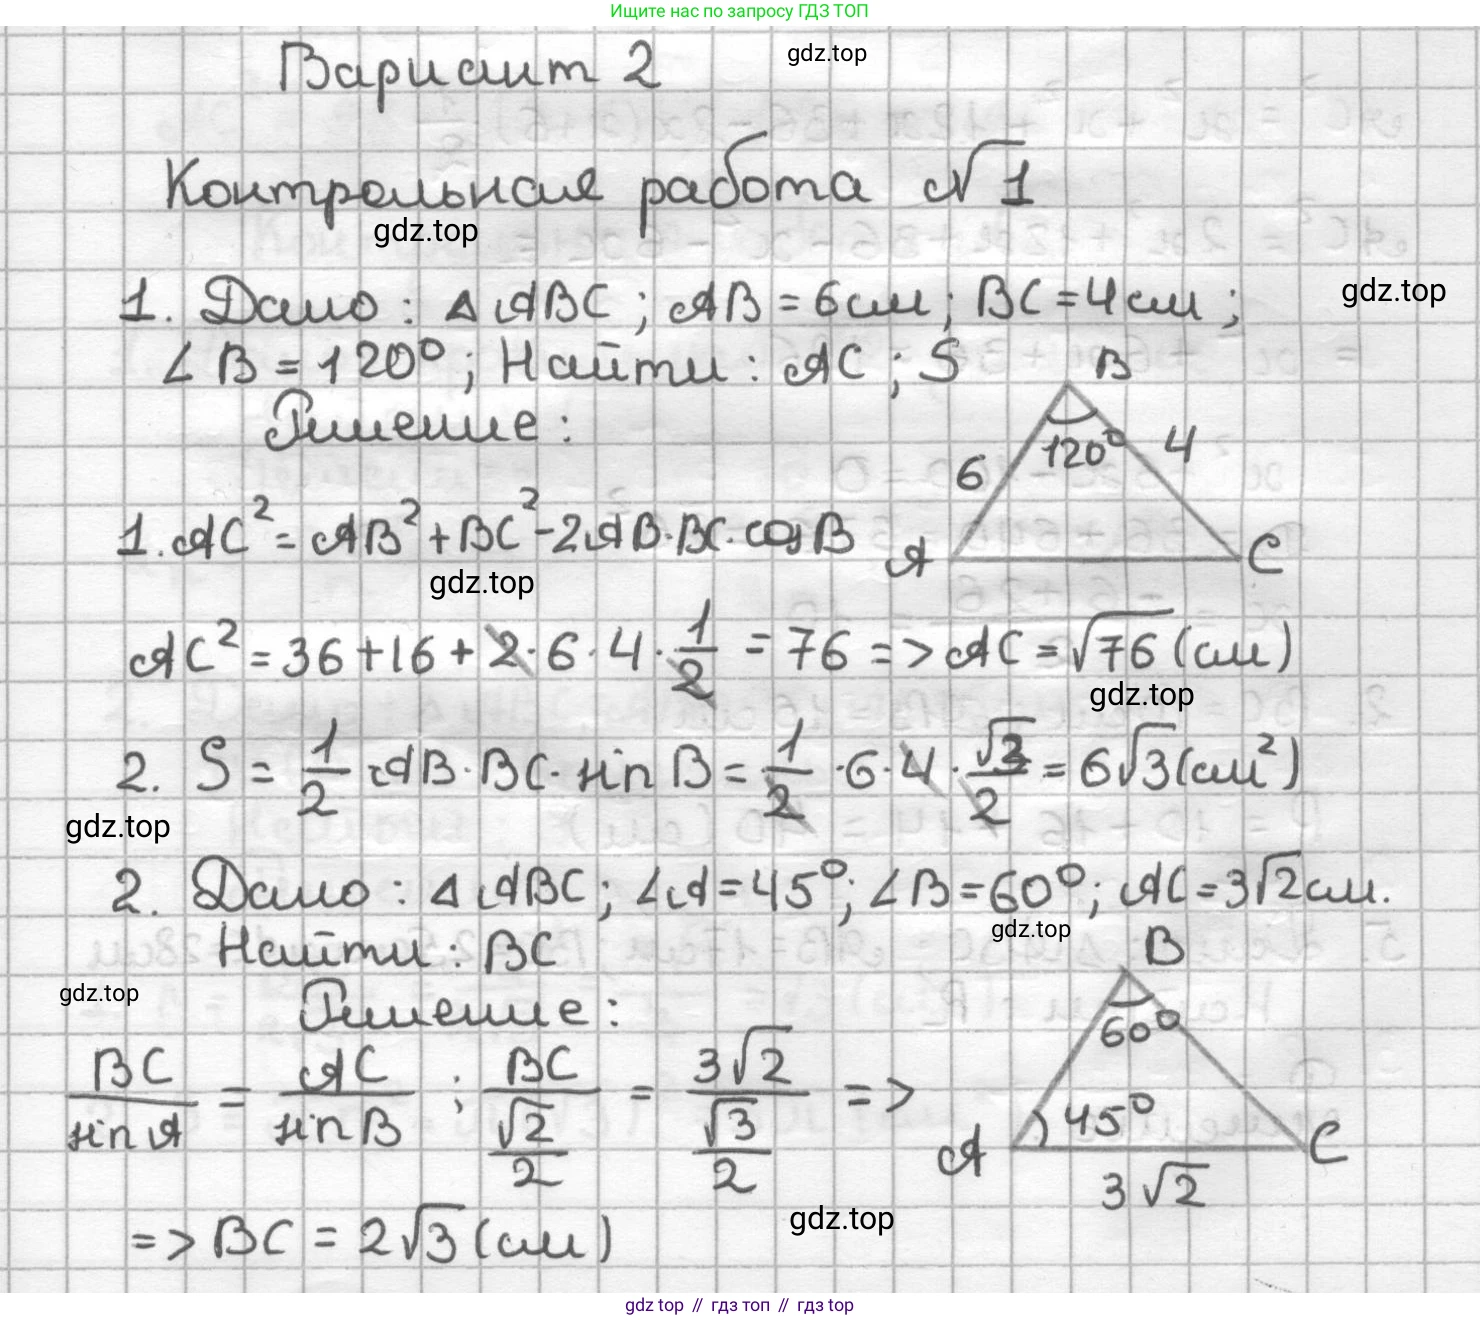 Ищите нас по запросу ГДЗ ТОП
Вариант 2
gdz.top
Контрольная работа №1
gdz.top
1. Дано: △ABC; AB = 6 см; BC = 4 см;
gdz.top
∠B = 120°; Найти: AC; S
Решение:
B
120°
4
6
A
C
1. AC² = AB² + BC² - 2AB · BC · cos B
gdz.top
AC² = 36 + 16 + 2 · 6 · 4 · 1/2 = 76 => AC = √76 (см)
gdz.top
2. S = 1/2 AB · BC · sin B = 1/2 · 6 · 4 · √3/2 = 6√3 (см²)
gdz.top
2. Дано: △ABC; ∠A = 45°; ∠B = 60°; AC = 3√2 см.
gdz.top
Найти: BC
B
gdz.top
Решение:
60°
BC/sin A = AC/sin B ; BC/(√2/2) = 3√2/(√3/2) =>
45°
A
C
3√2
gdz.top
=> BC = 2√3 (см)
gdz top // гдз топ // гдз top